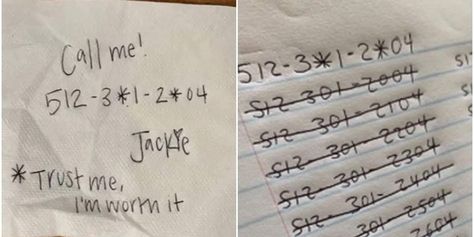 Call me!
512-3*1-2*04
Jackie
* Trust me,
I'm worth it
512-3*1-2*04
512-301-2004
512-301-2104
512-301-2204
512-301-2304
512-301-2404
301-2504
2604